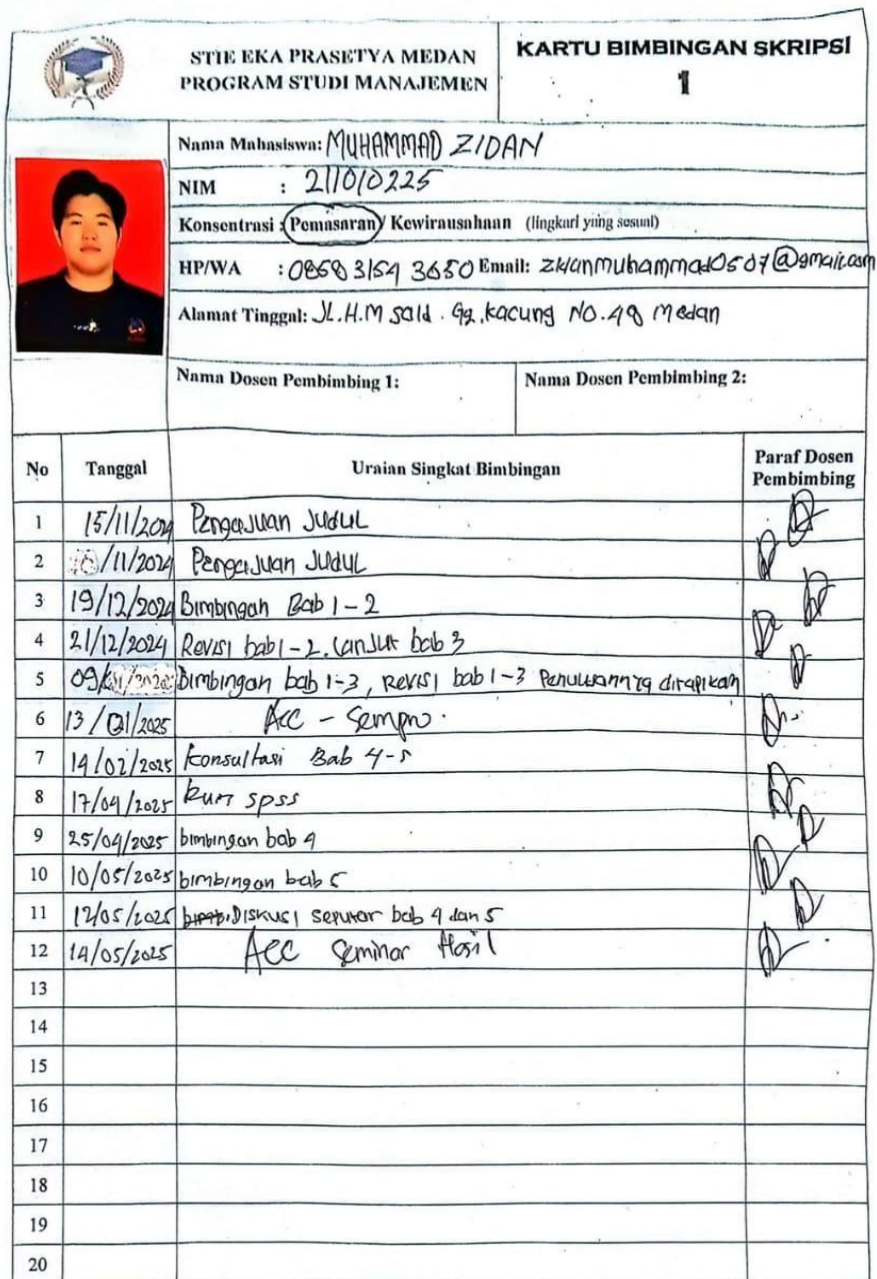 STIE EKA PRASETYA MEDAN
PROGRAM STUDI MANAJEMEN
KARTU BIMBINGAN SKRIPSI
1
Nama Mahasiswa: MUHAMMAD ZIDAN
NIM : 211010225
Konsentrasi : Pemasaran / Kewirausahaan (lingkari yang sesuai)
HP/WA : Email:
Alamat Tinggal: JL.H.M Said . Gg.kacung NO.48 Medan
Nama Dosen Pembimbing 1:
Nama Dosen Pembimbing 2:
No Tanggal Uraian Singkat Bimbingan Paraf Dosen Pembimbing
1 15/11/2024 Pengajuan Judul
2 /11/2024 Pengajuan Judul
3 19/12/2024 Bimbingan Bab 1-2
4 21/12/2024 Revisi bab 1-2, lanjut bab 3
5 09/ Bimbingan bab 1-3, Revisi bab 1-3 Penulisannya dirapikan
6 13/01/2025 ACC - Sempro.
7 14/02/2025 Konsultasi Bab 4-5
8 17/04/2025 Run spss
9 25/04/2025 bimbingan bab 4
10 10/05/2025 bimbingan bab 5
11 12/05/2025 Diskusi seputar bab 4 dan 5
12 14/05/2025 ACC Seminar Hasil
13
14
15
16
17
18
19
20